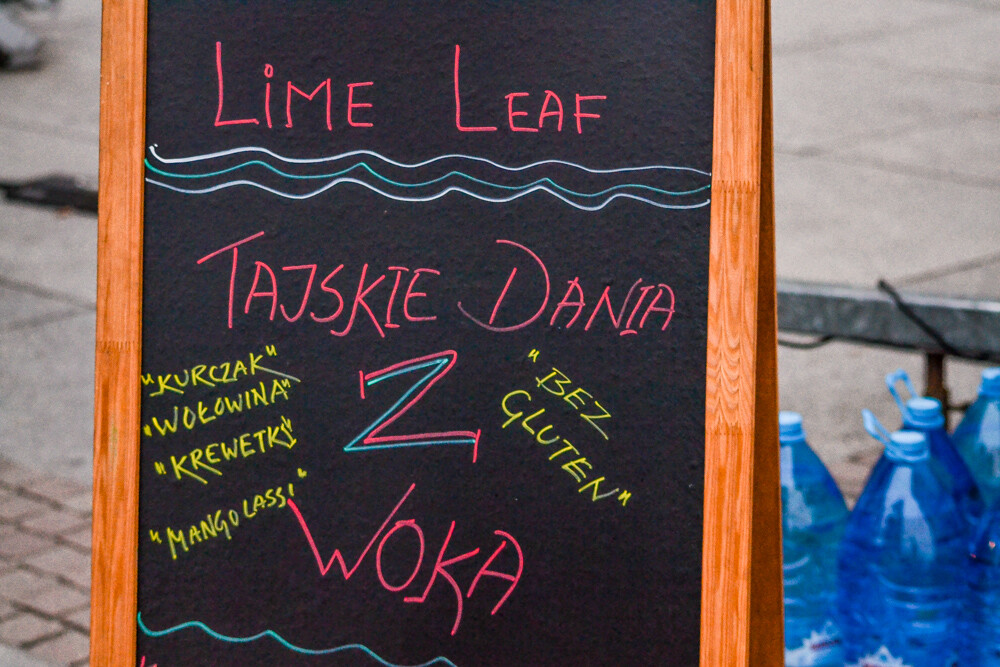 LIME LEAF
TAJSKIE DANIA
"KURCZAK"
"WOŁOWINA"
"KREWETKI"
"MANGO LASSI"
Z
"BEZ
GLUTEN"
WOKA